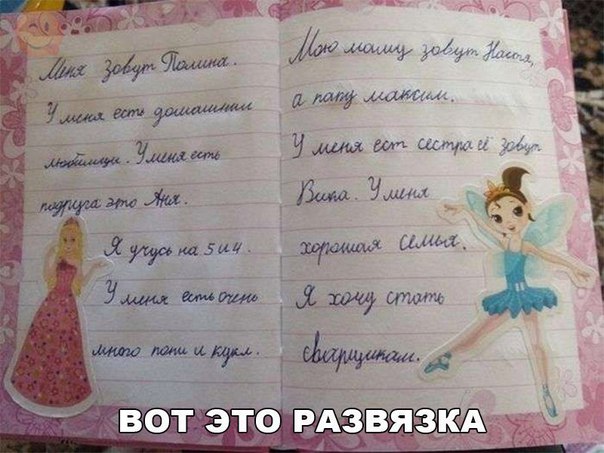 Меня зовут Полина.
У меня есть домашнии
любимици. У меня есть
подруга это Аня.
Я учусь на 5 и 4.
У меня есть очень
много пони и кукл.
Мою маму зовут Настя,
а папу максим.
У меня ест сестра её зовут
Вика. У меня
хорошая семья.
Я хочу стать
сварщикам.
ВОТ ЭТО РАЗВЯЗКА